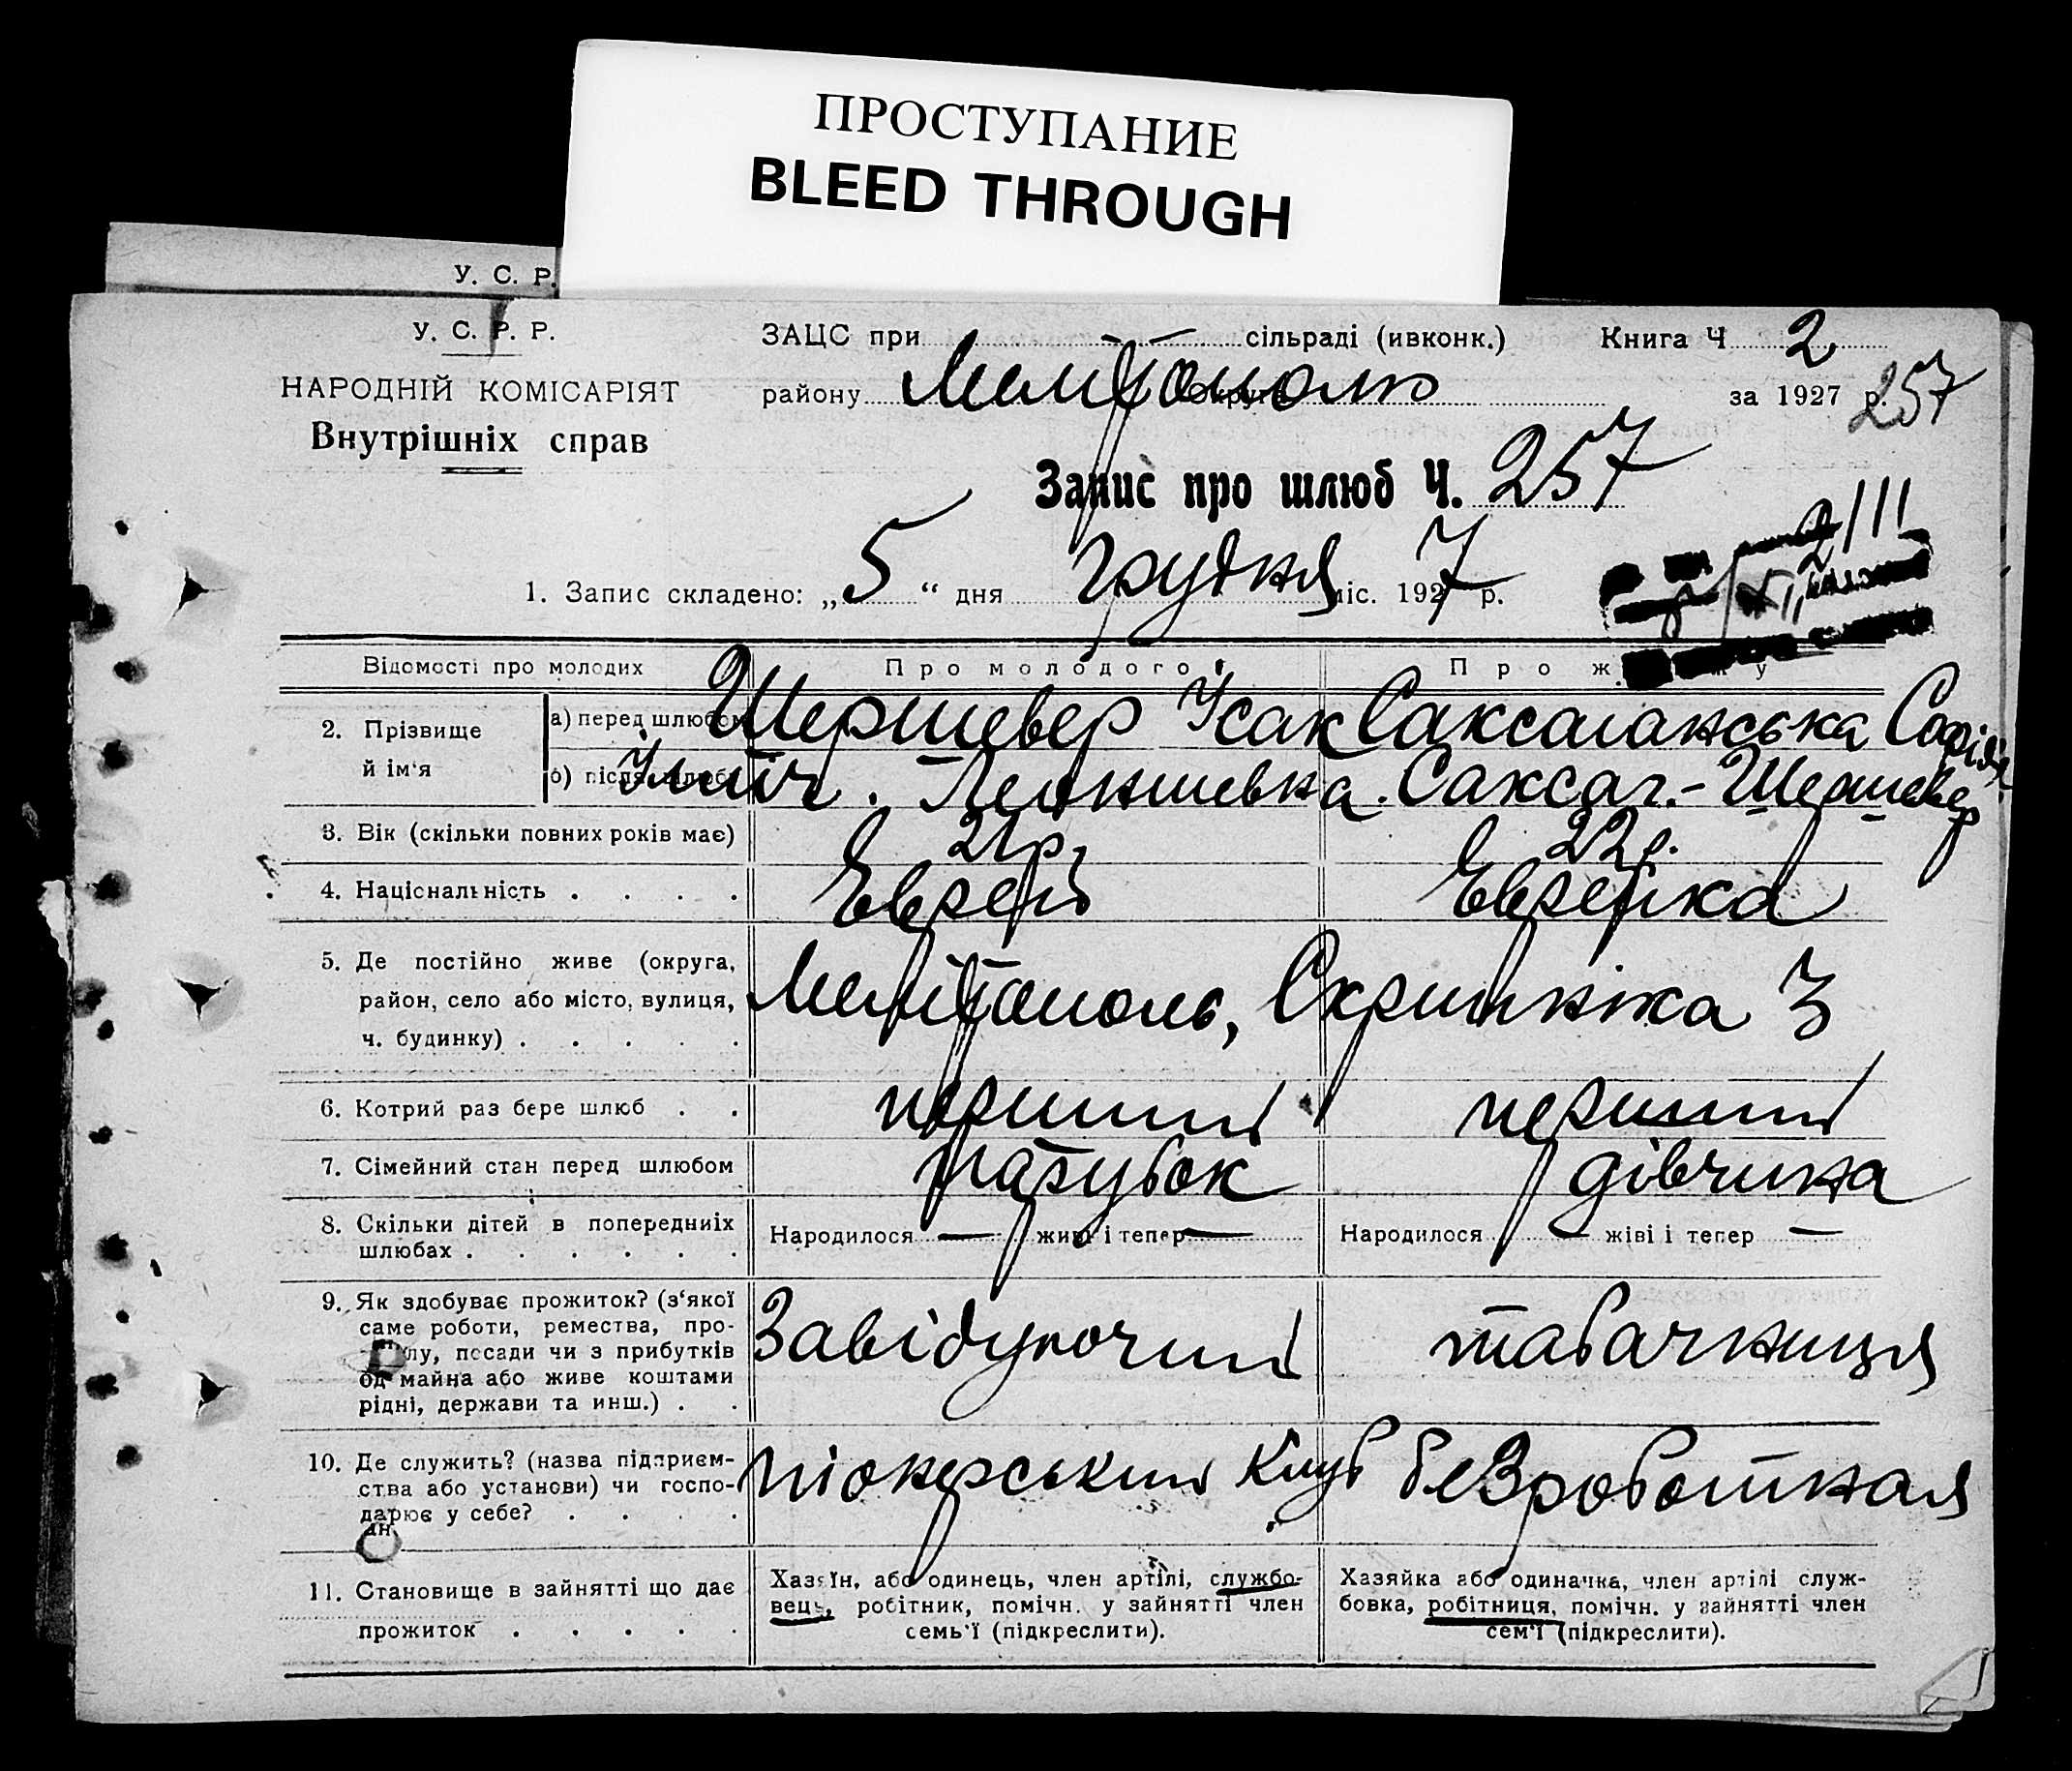 ПРОСТУПАНИЕ
BLEED THROUGH
У. С. Р.
У. С. Р. Р.
НАРОДНІЙ КОМІСАРІЯТ
Внутрішніх справ
ЗАЦС при — — сільраді (ивконк.) Книга Ч 2
району Мелітополю за 1927 р. 257
Запис про шлюб Ч. 257
1. Запис складено: „ 5 “ дня грудня міс. 1927 р.
Відомості про молодих Про молодого Про ж у
2. Прізвище й ім‘я
а) перед шлюбом Шершевер Ісак Саксаганська Софія
б) після шлюбу Саксаг.-Шершевер
3. Вік (скільки повних років має) 21р. 22р.
4. Національність . . . . Еврей Еврейка
5. Де постійно живе (округа,
район, село або місто, вулиця,
ч. будинку) . . . . .
Мелітополь, Скрипніка 3
6. Котрий раз бере шлюб . . перший перший
7. Сімейний стан перед шлюбом парубок дівчина
8. Скільки дітей в попередниіх
шлюбах . . . . . .
Народилося — живі і тепер — Народилося — жіві і тепер —
9. Як здобуває прожиток? (з‘якої
саме роботи, ремества, про-
лу, посади чи з прибутків
од майна або живе коштами
рідні, держави та инш.) . .
Завідуючий табачниця
10. Де служить? (назва підприєм-
ства або установи) чи госпо-
дарює у себе? . . . .
піонерський клуб безработная
11. Становище в зайнятті що дає
прожиток . . . . .
Хазяїн, або одинець, член артілі, службо-
вець, робітник, помічн. у зайнятті член
семь‘ї (підкреслити).
Хазяйка або одиначка, член артілі служ-
бовка, робітниця, помічн. у зайнятті член
сем‘ї (підкреслити).